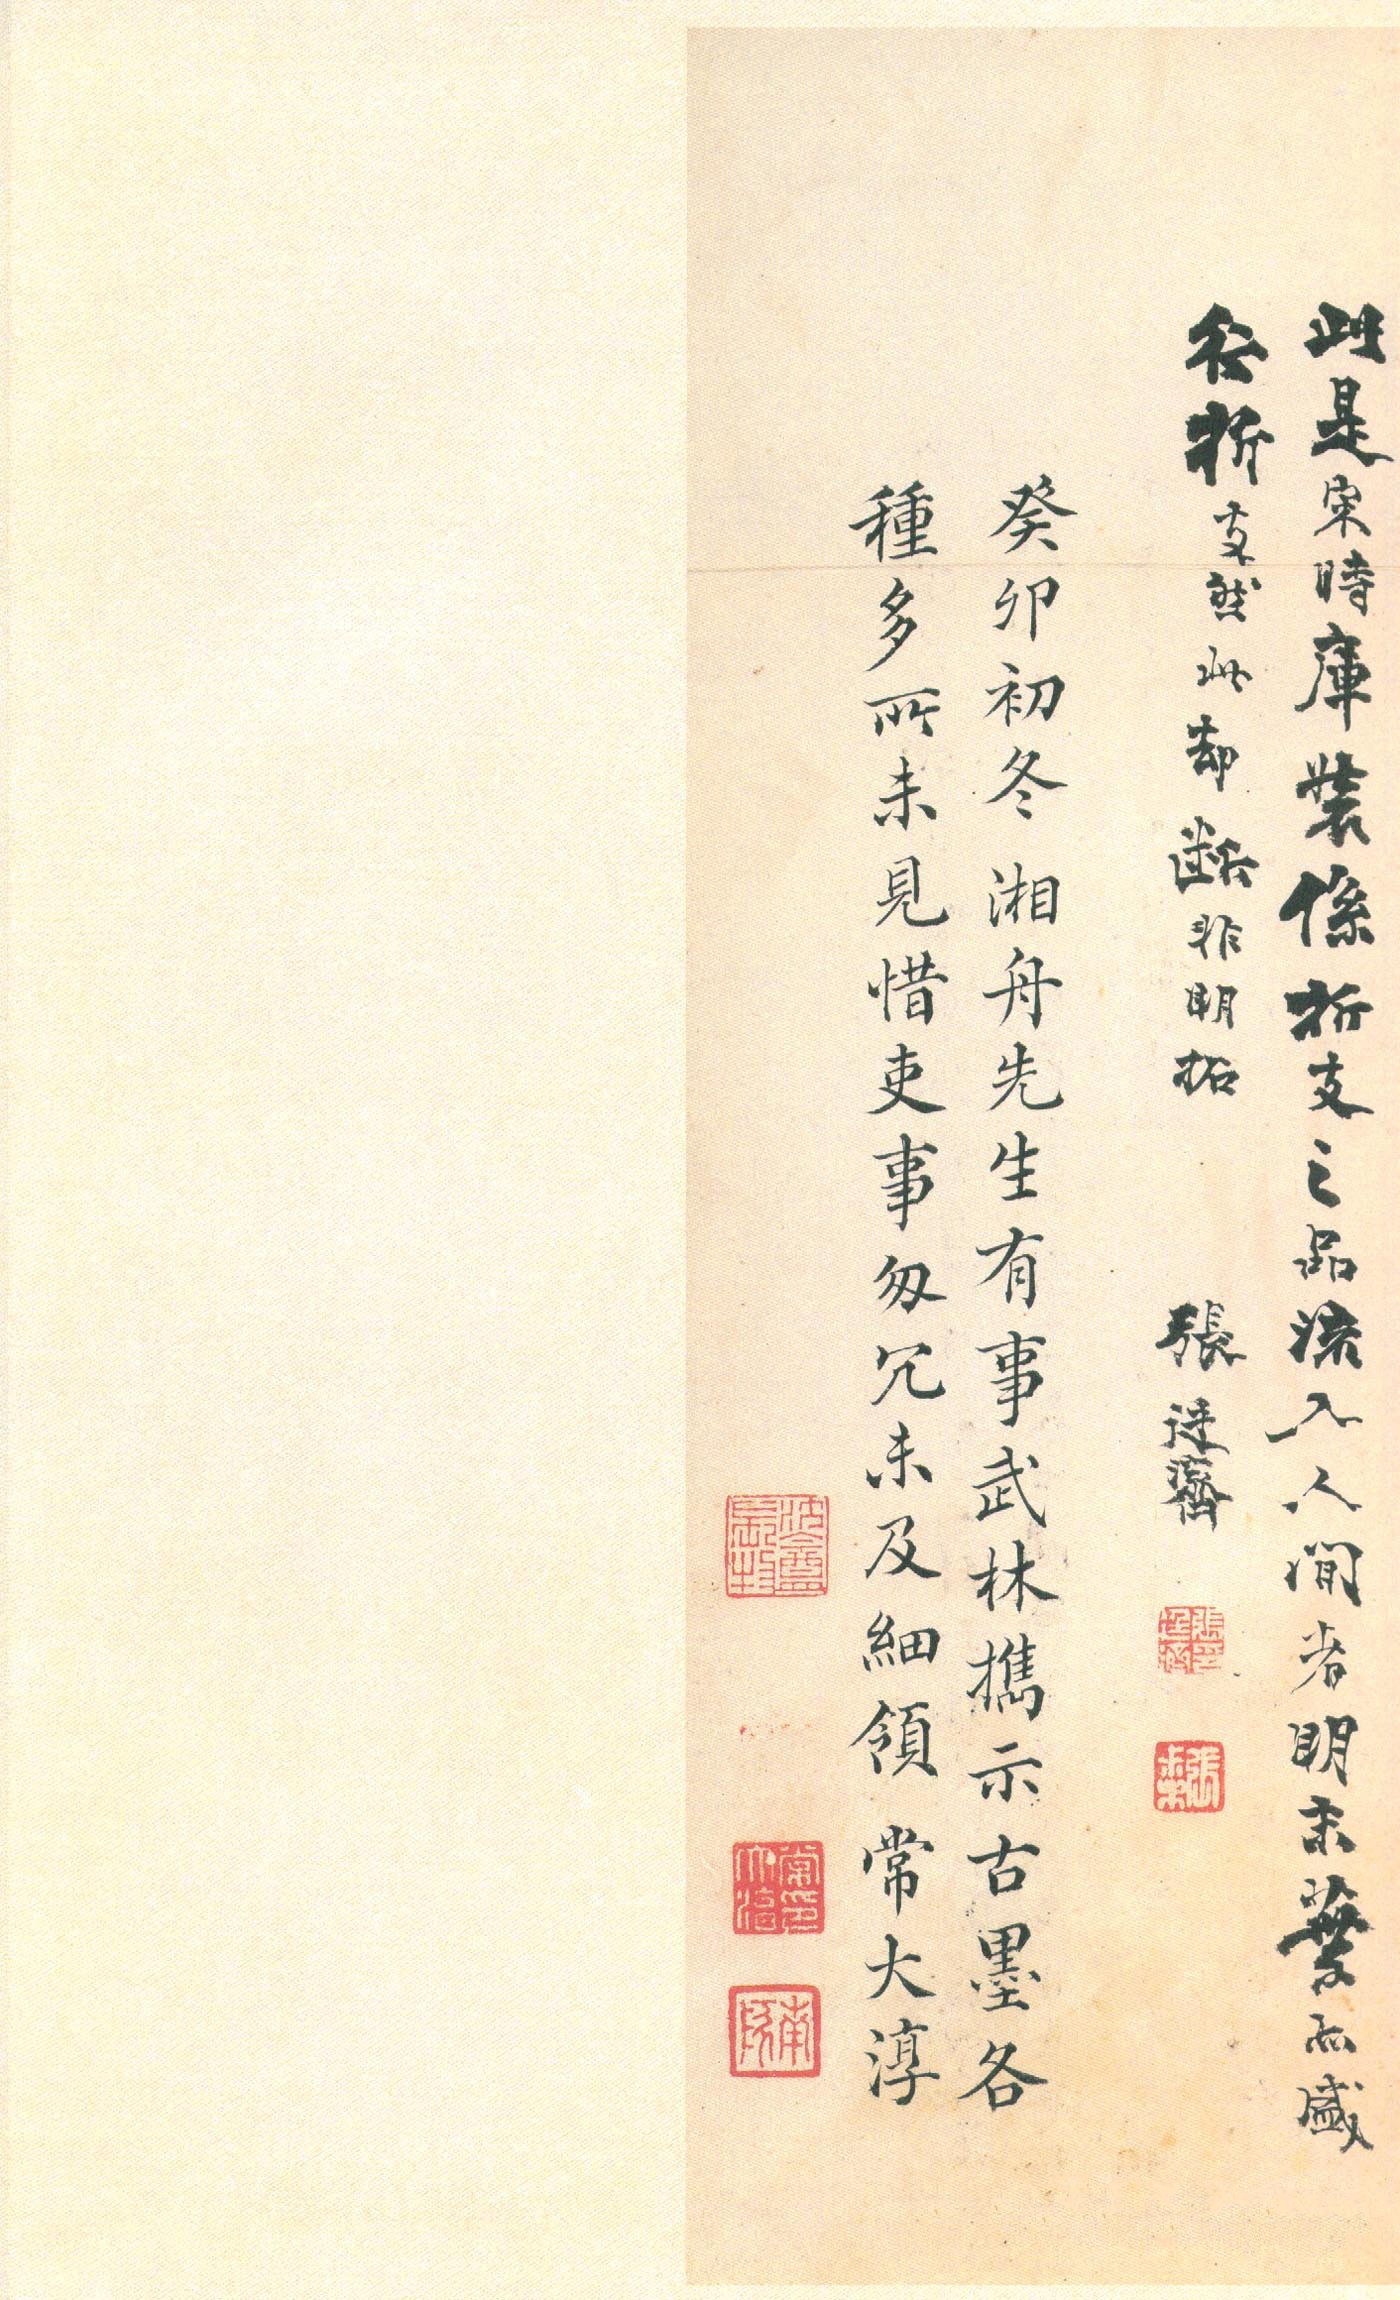 此是宋時庫裝係折支之品流入人間者明末葉亦盛
行折支然此却斷非明拓
張廷濟
癸卯初冬湘舟先生有事武林攜示古墨各
種多所未見惜吏事匆冗未及細領 常大淳